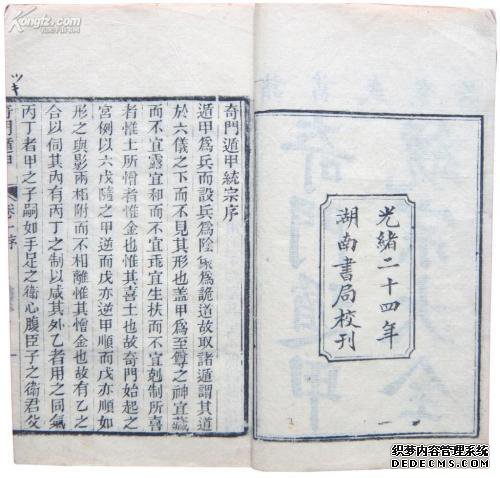 光緒二十四年
湖南書局校刊
奇門遁甲統宗序
遁甲爲兵而設兵爲陰象爲詭道故取諸遁謂其道
於六儀之下而不見其形也蓋甲爲至尊之神宜藏
而不宜露宜和而不宜乖宜生扶而不宜剋制所喜
者惟土所憎者惟金也惟其喜土也故奇門始起之
宮例以六戊隨之甲逆而戊亦逆甲順而戊亦順如
形之與影兩相附而不相離惟其憎金也故有乙之
合以伺其內有丙丁之制以威其外乙者用之同氣
丙丁者甲之子嗣如手足之衛心腹臣子之衛君父
奇門遁甲 卷一序
Kongfz.com
织梦内容管理系统
DEDECMS.COM